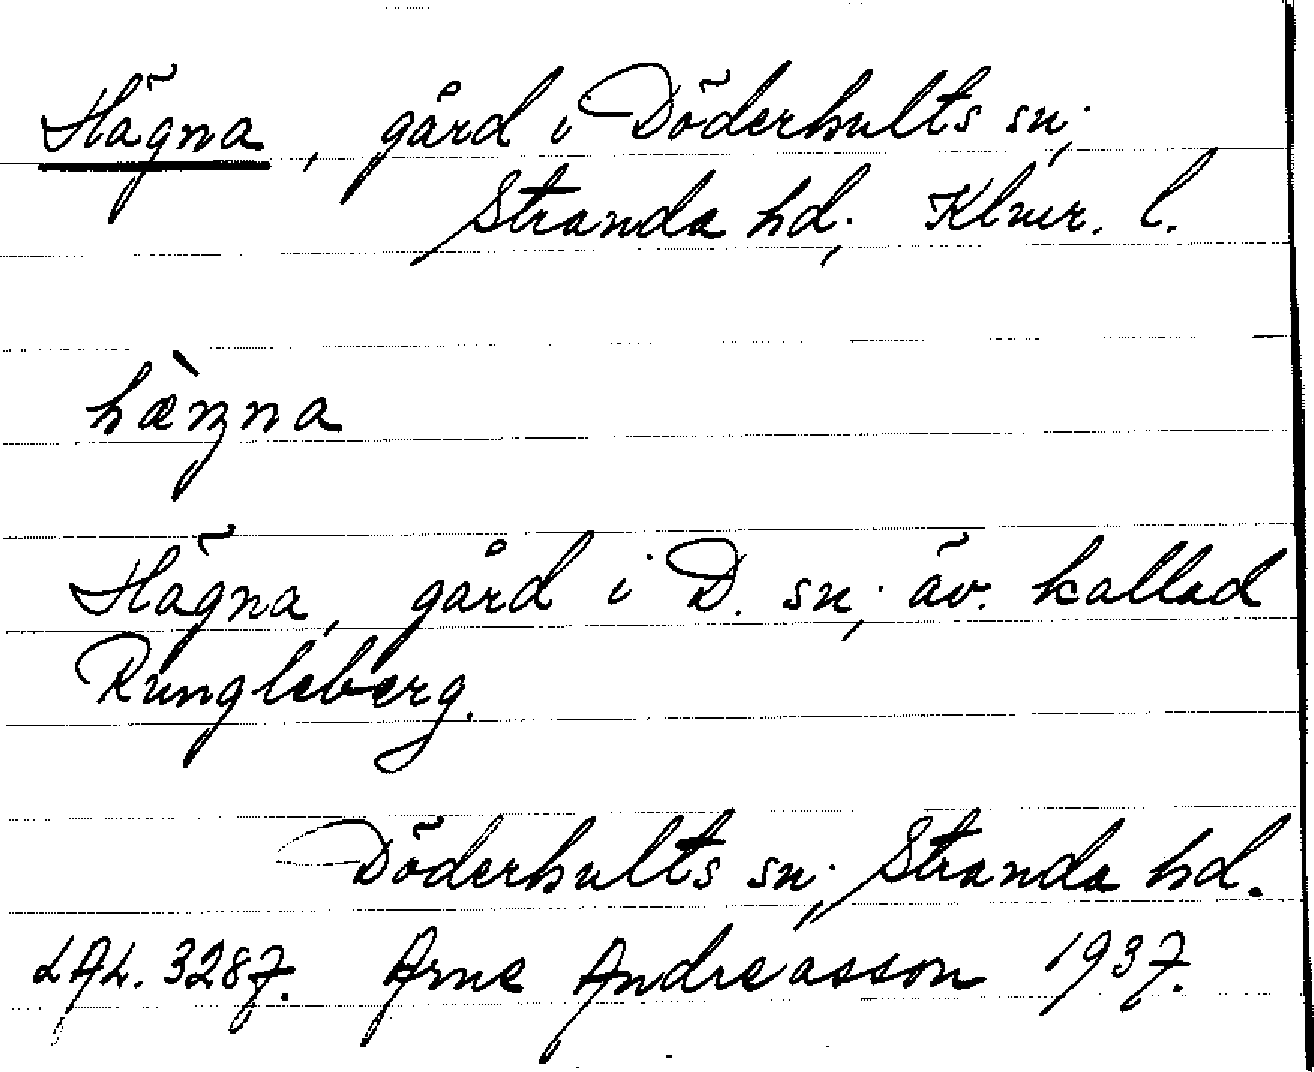 Hägna, gård i Döderhults sn;
Stranda hd; Klmr. l.
hæ̀ŋna
Hägna, gård i D. sn; äv. kallad
Rungleberg.
Döderhults sn; Stranda hd.
LAL. 3287. Arne Andreasson 1937.